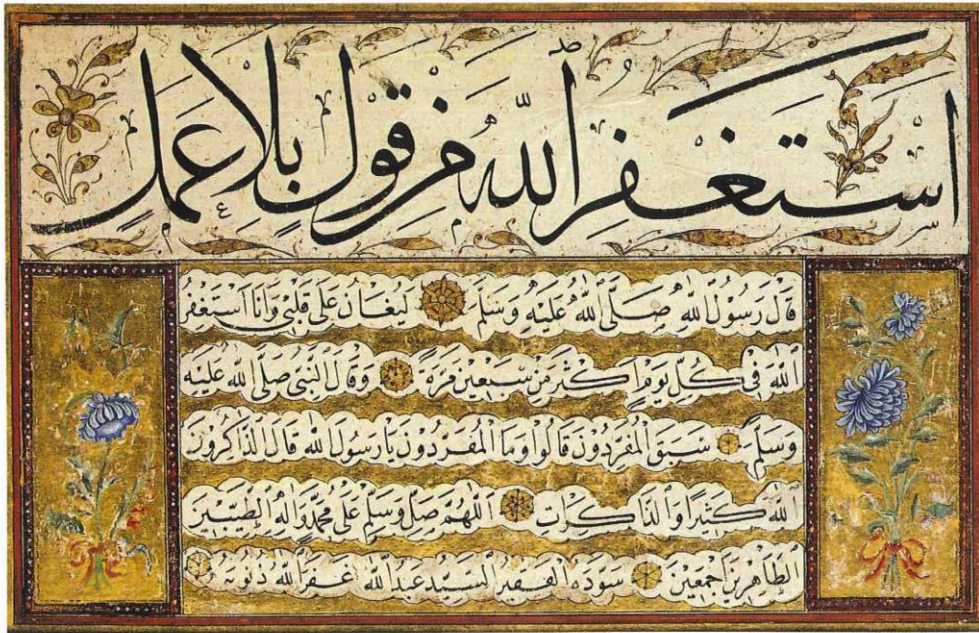 اَسْتَغْفِرُ اللّٰهَ مِنْ قَوْلٍ بِلَا عَمَلٍ
قَالَ رَسُولُ اللّٰهِ صَلَّى اللّٰهُ عَلَيْهِ وَسَلَّمَ لَيُغَانُ عَلَى قَلْبِي وَاَنَا اَسْتَغْفِرُ
اَللّٰهَ فِي كُلِّ يَوْمٍ اَكْثَرَ مِنْ سَبْعِينَ مَرَّةً وَقَالَ النَّبِيُّ صَلَّى اللّٰهُ عَلَيْهِ
وَسَلَّمَ سَبَقَ الْمُفَرِّدُونَ قَالُوا وَمَا الْمُفَرِّدُونَ يَا رَسُولَ اللّٰهِ قَالَ الذَّاكِرُونَ
اَللّٰهَ كَثِيرًا وَالذَّاكِرَاتِ اَللّٰهُمَّ صَلِّ وَسَلِّمْ عَلَى مُحَمَّدٍ وَاٰلِهِ الطَّيِّبِينَ
اَلطَّاهِرِينَ اَجْمَعِينَ سَوَّدَهُ الْفَقِيرُ السَّيِّدُ عَبْدُ اللّٰهِ غَفَرَ اللّٰهُ ذُنُوبَهُ